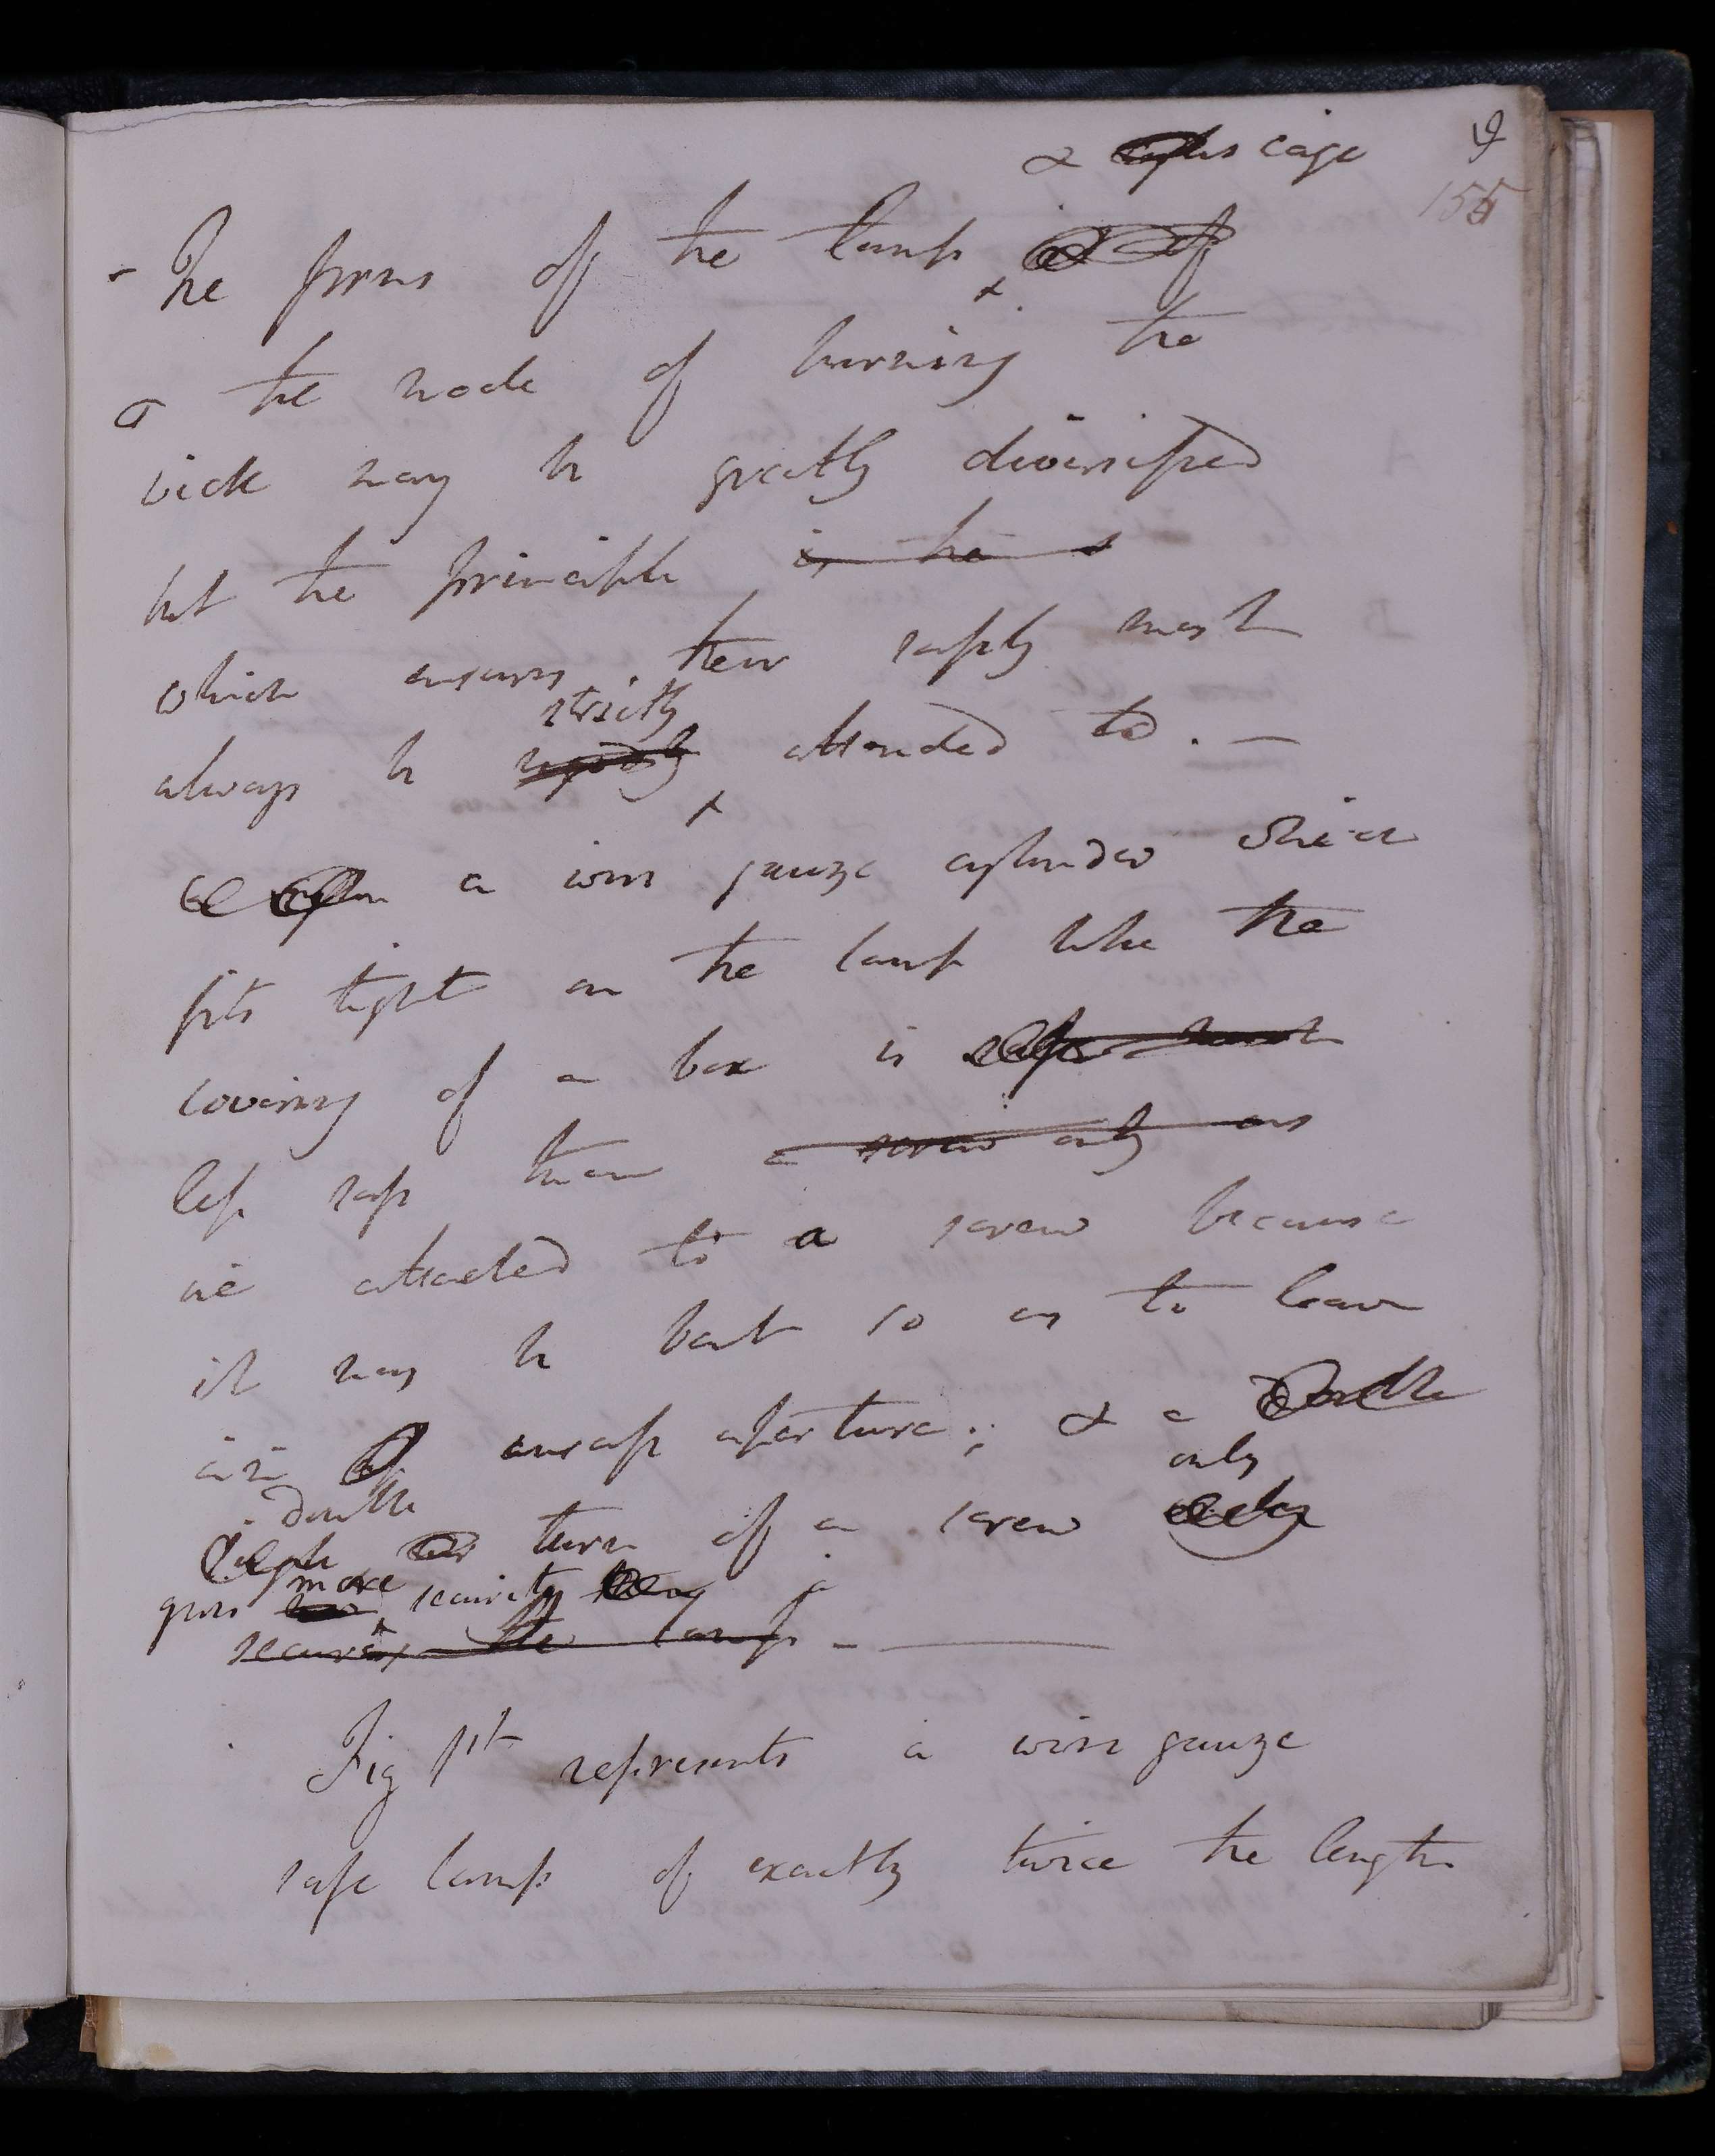 & cage
9
155
- The forms of the lamp
& the mode of burning the
wick may be greatly diversified
but the principle is the
which ensures their safety must
strictly
always be rigidly attended to. —
a wire gauze cylinder which
fits tight on the lamp like the
covering of a box is
less safe than a screw only as
we attached to a screw because
it may be bent so as to leave
an unsafe aperture; & a double
only
double
turn of a screw only
more
gives security
security the lamp - —
Fig 1st represents a wire gauze
safe lamp of exactly twice the length